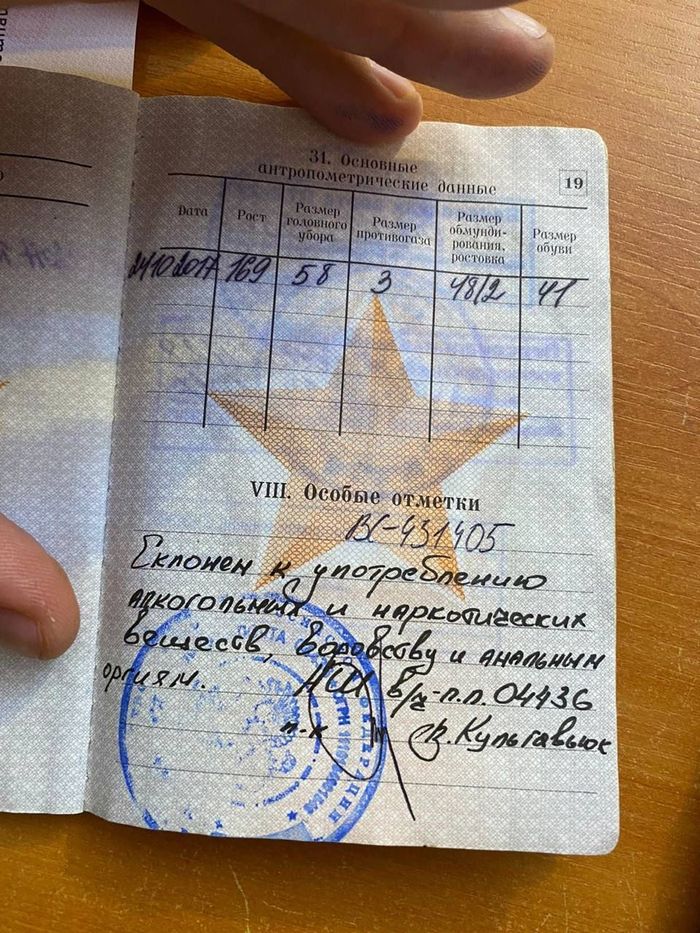 31. Основные
антропометрические данные
19
Дата Рост Размер головного убора Размер противогаза Размер обмунди-рования, ростовка Размер обуви
24102017 169 58 3 48/2 41
VIII. Особые отметки
ВС-431405
Склонен к употреблению
алкогольных и наркотических
веществ, воровству и анальным
оргиям. НШ в/ч-п.п. 04436
п-к Р. Культавьюк